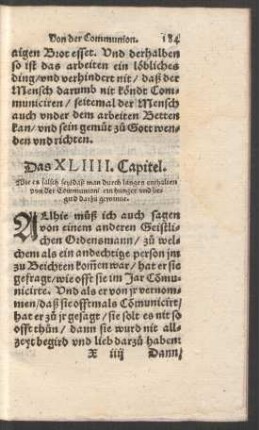 Von der Communion. 184
aigen Brot esset. Vnd derhalben
so ist das arbeiten ein löbliches
ding/ vnd verhindert nit / daß der
Mensch darumb nit köndt Com-
municiren / seitemal der Mensch
auch vnder dem arbeiten Betten
kan/ vnd sein gemüt zů Gott wen-
den vnd richten.
Das XLIIII. Capitel.
Wie es falsch sey/daß man durch langes enthalten
von der Communion/ ein hunger vnd lust
gnd darzů gewinne.
ALlhie můß ich auch sagen
von einem anderen Geistli-
chen Ordensmann/ zů wel-
chem als ein andechtige person jm
zu Beichten kom̃en war/ hat er sie
gefragt/ wie offt sie im Jar Cõmu-
nicirte. Vnd als er von jr vernom-
men/daß sie offtmals Cõmunicirt/
hat er zů jr gesagt/ sie solt es nit so
offt thůn / dann sie wurd nit all-
zeyt begird vnd lieb darzů haben:
X iiij Dann/